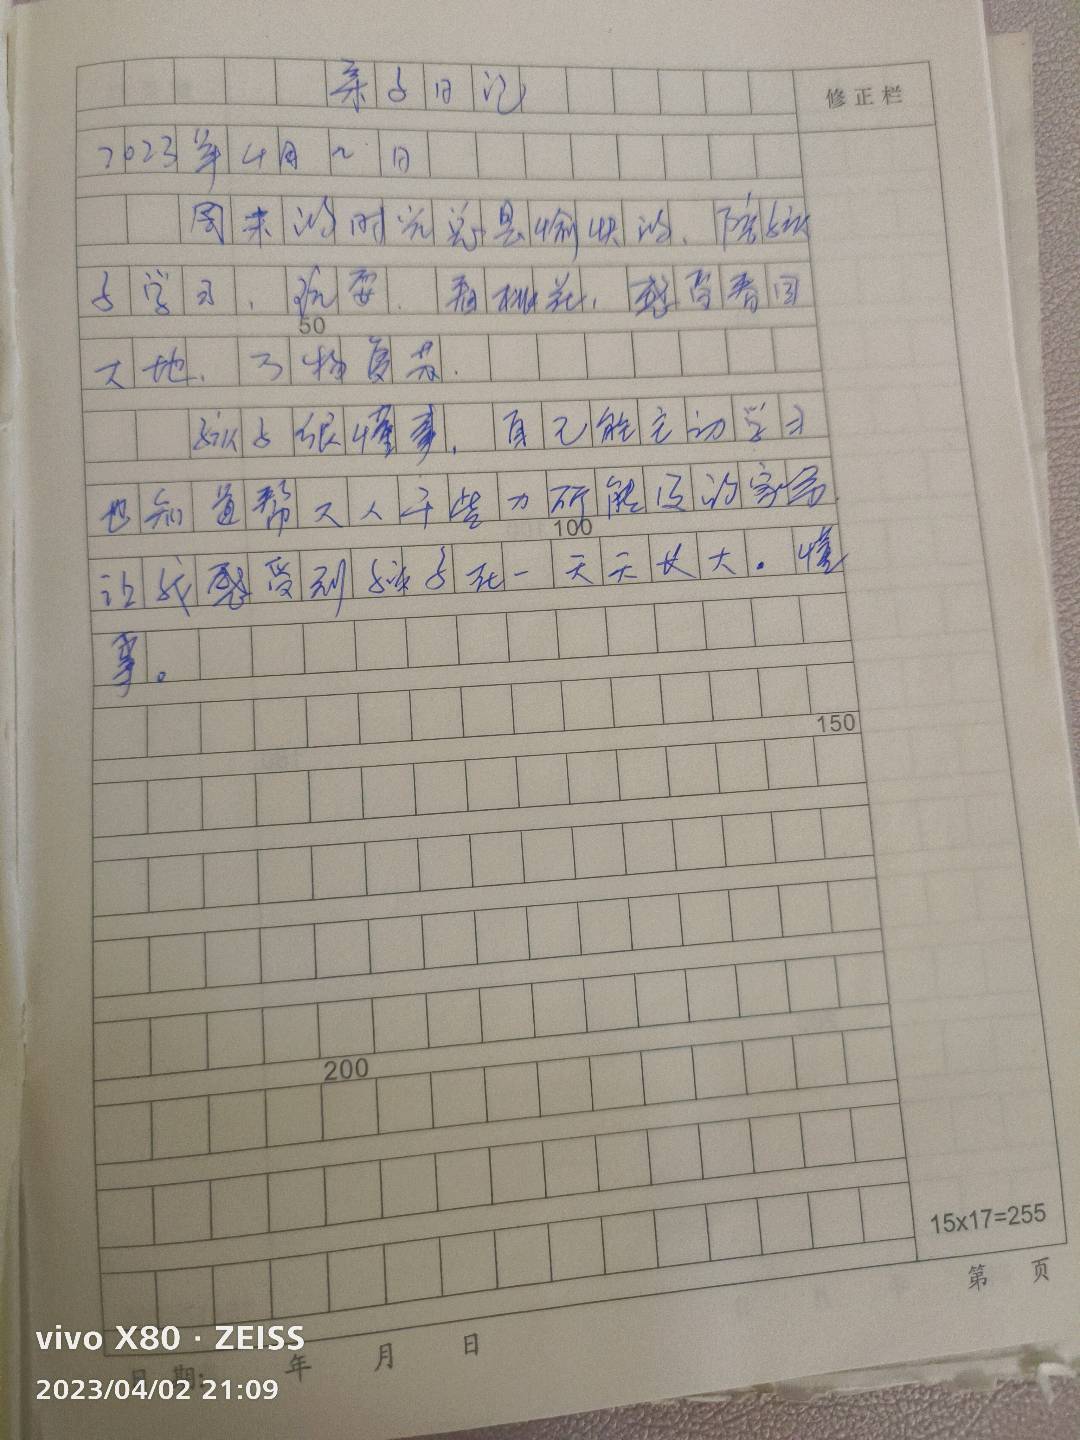 亲子日记
修正栏
2023年4月2日
周末的时光总是愉快的、陪孩
子学习、玩耍、看桃花、感受春回
大地、万物复苏.
孩子很懂事、自己能主动学习
也知道帮大人干些力所能及的家务
让我感受到孩子在一天天长大。懂
事。
50
100
150
200
15x17=255
第 页
日期: 年 月 日
vivo X80 · ZEISS
2023/04/02 21:09